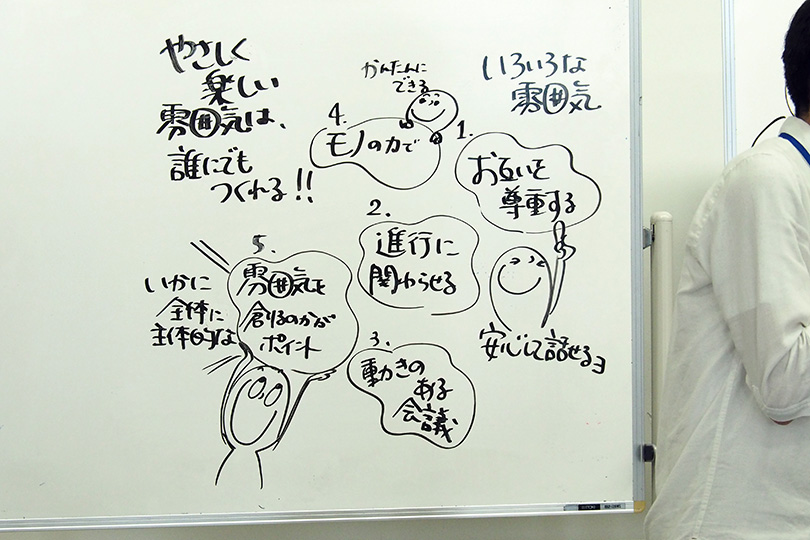 やさしく
楽しい
雰囲気は、
誰にでも
つくれる!!
いろいろな
雰囲気
1.
お互いを
尊重する
安心して話せるヨ
2.
進行に
関わらせる
3.
動きの
ある
会議
かんたんに
できる
4.
モノの力で
5.
雰囲気を
創るのかが
ポイント
いかに
全体に
主体的な